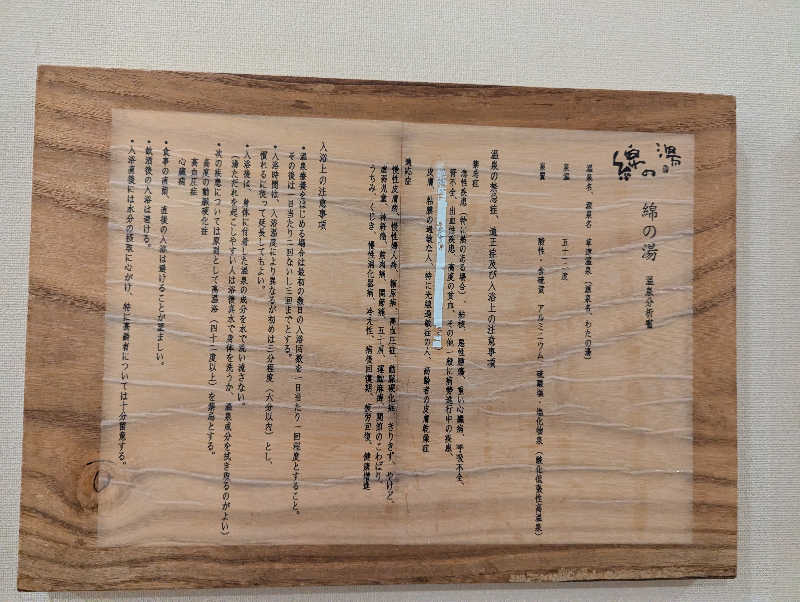 綿の湯
綿の湯 温泉分析書
温泉名、源泉名 草津温泉(源泉名、わたの湯)
泉温 五十二・二度
泉質 酸性・含硫黄 アルミニウム 硫酸塩・塩化物泉(酸化低張性高温泉)
温泉の禁忌症、適正症及び入浴上の注意事項
禁忌症
急性疾患(特に熱のある場合)、結核、悪性腫瘍、重い心臓病、呼吸不全、
腎不全、出血性疾患、高度の貧血、その他一般に病勢進行中の疾患、
皮膚、粘膜の過敏な人、特に光線過敏症の人、高齢者の皮膚乾燥症
適応症
慢性皮膚病、慢性婦人病、糖尿病、高血圧症、動脈硬化症、きりきず、やけど、
虚弱児童、神経痛、筋肉痛、関節痛、五十肩、運動麻痺、関節のこわばり、
うちみ、くじき、慢性消化器病、冷え性、病後回復期、疲労回復、健康増進
入浴上の注意事項
・温泉療養をはじめる場合は最初の数日の入浴回数を一日当たり一回程度とすること。
その後は一日当たり二回ないし三回までとする。
・入浴時間は、入浴温度により異なるが初めは三分程度(六分以内)とし、
慣れるに従って延長してもよい。
・入浴後は、身体に付着した温泉の成分を水で洗い流さない。
(湯ただれを起こしやすい人は浴後真水で身体を洗うか、温泉成分を拭き取るのがよい)
・次の疾患については原則として高温浴(四十二度以上)を禁忌とする。
高度の動脈硬化症
高血圧症
心臓病
・食事の直前、直後の入浴は避けることが望ましい。
・飲酒後の入浴は避ける。
・入浴直後には水分の摂取に心がけ、特に高齢者については十分留意する。